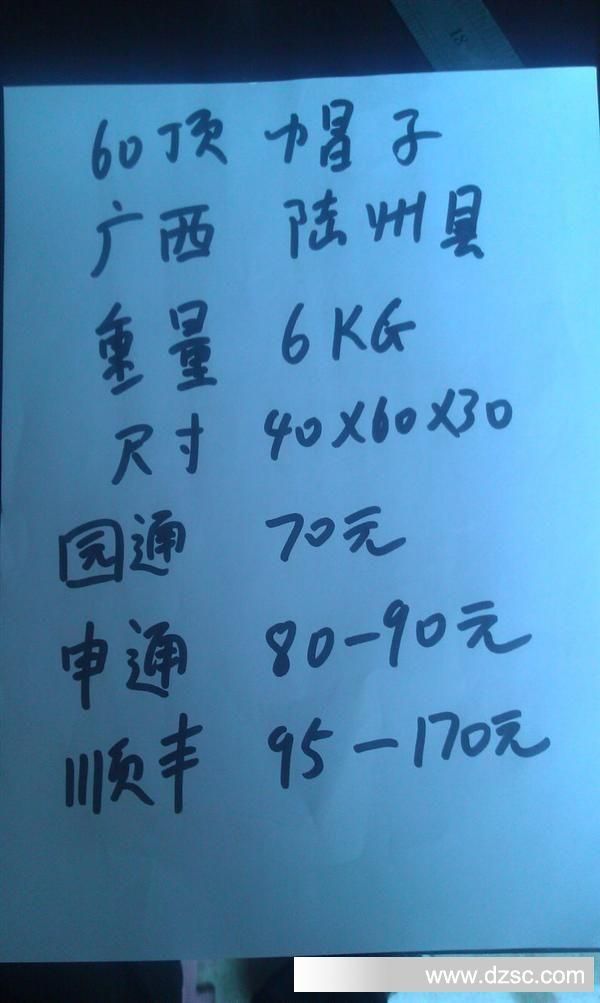 60顶 帽子
广西 陆州县
重量 6KG
尺寸 40X60X30
园通 70元
申通 80-90元
顺丰 95-170元
18
www.dzsc.com